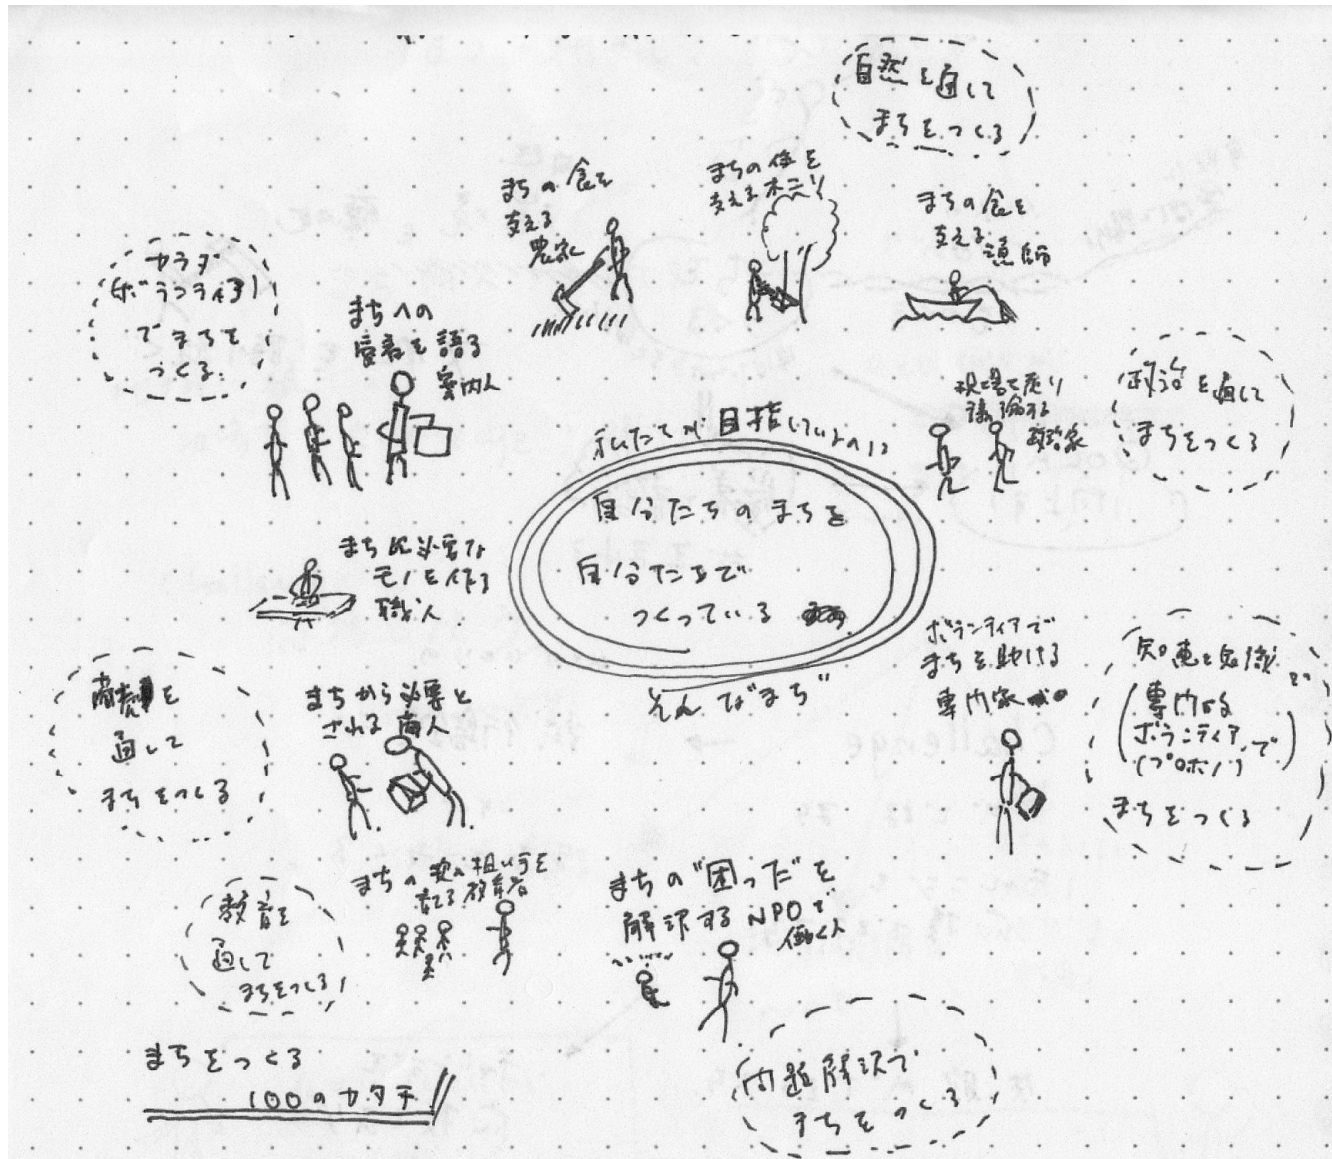 自然を通して
まちをつくる
まちの食を
支える
農家
まちの住を
支える木こり
まちの食を
支える
漁師
カラダ
(ボランティア)
でまちを
つくる
まちへの
愛着を語る
案内人
現場を走り
議論する
政治家
政治を通して
まちをつくる
私たちが目指しているのは
自分たちのまちを
自分たちで
つくっている
そんな"まち"
まちに必要な
モノを作る
職人
ボランティアで
まちを助ける
専門家
知恵と知識で
(専門的
ボランティアで
(プロボノ))
まちをつくる
商売を
通して
まちをつくる
まちから必要と
される商人
まちの次の担い手を
育てる教育者
教育を
通して
まちをつくる
まちの"困った"を
解決するNPOで
働く人
問題解決で
まちをつくる
まちをつくる
100のカタチ